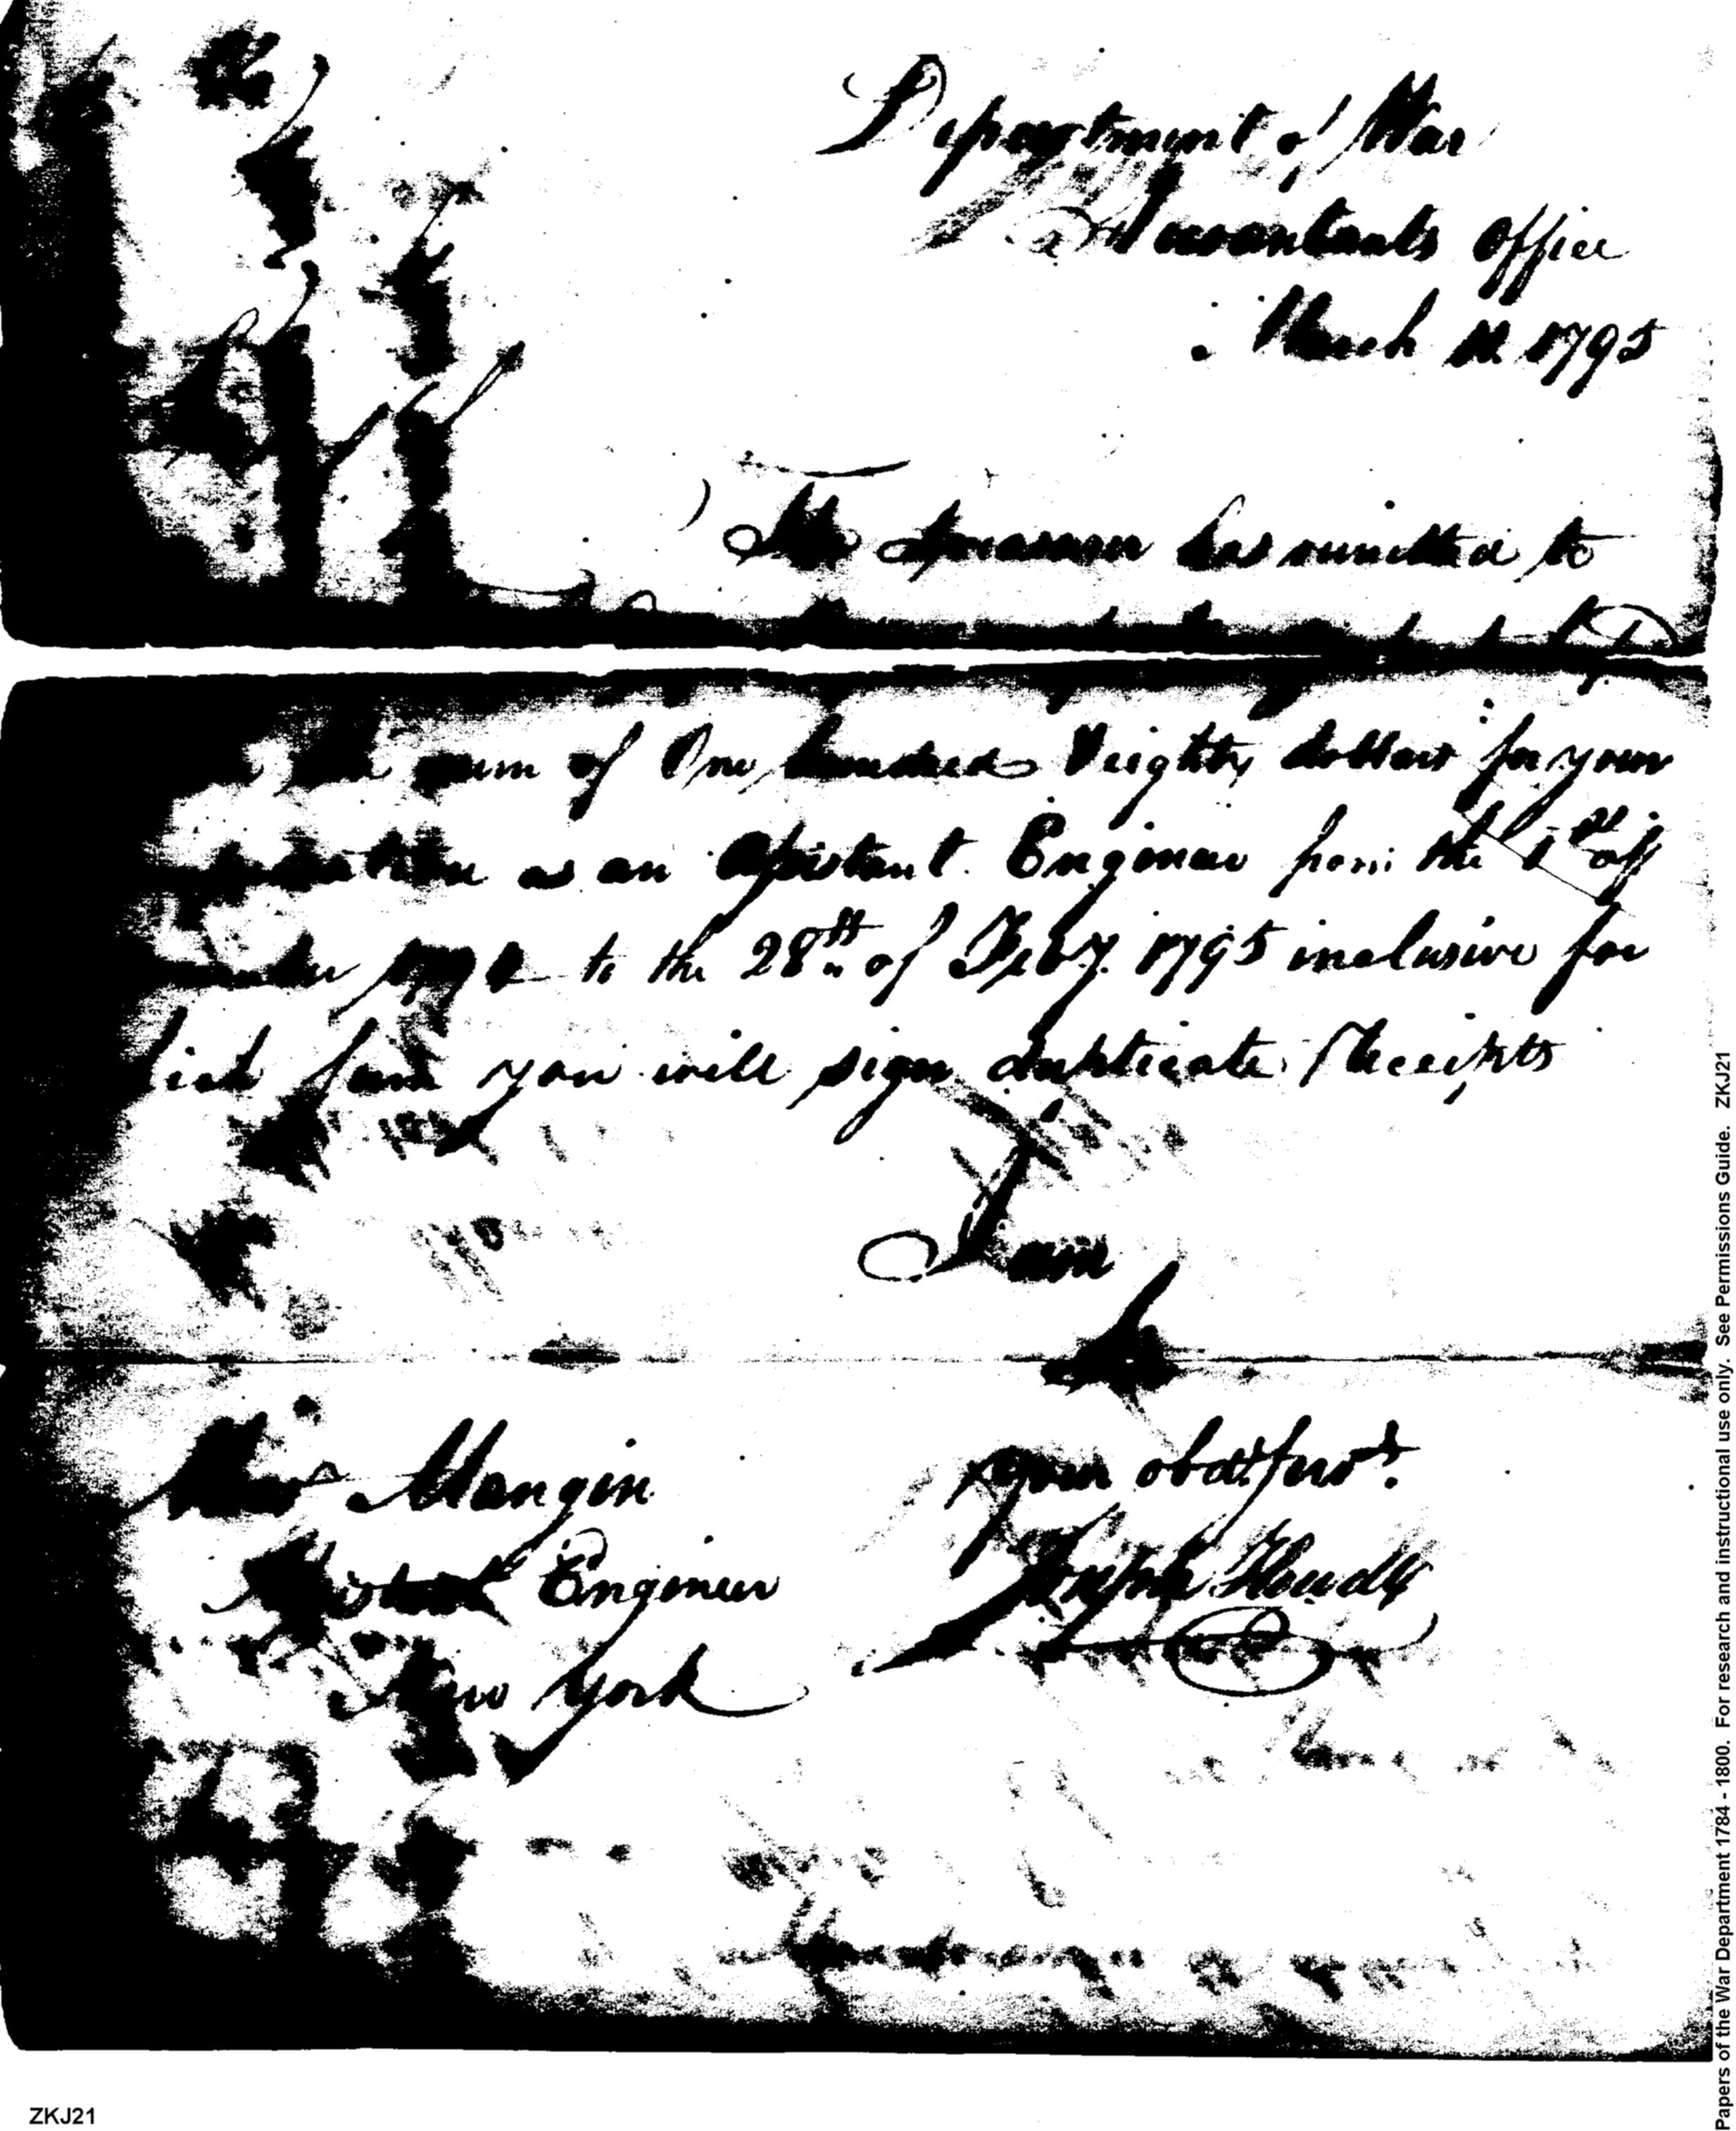 Department of War
Accountants Office
March 11 1795
The Treasurer has remitted to
sum of One hundred & eighty dollars for your
as an assistant Engineer from the 1st of
to the 28th of Feby. 1795 inclusive for
which sum you will sign duplicate Receipts
I am
your obdt. servt.
Mangin
Joseph Howell
Assistant Engineer
New York
ZKJ21
Papers of the War Department 1784 - 1800. For research and instructional use only. See Permissions Guide. ZKJ21